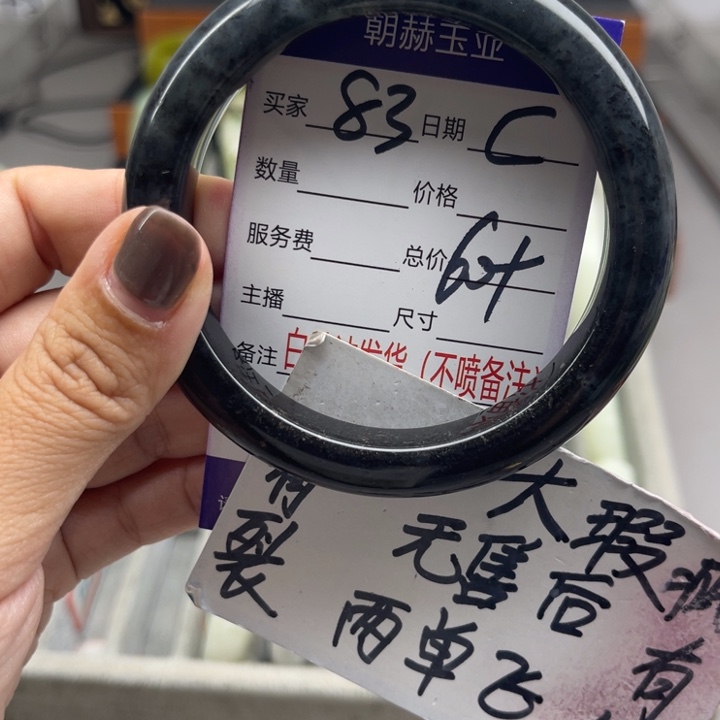 朝赫玉业
买家 83 日期 C
数量 价格
服务费 总价
主播 尺寸
备注 发货（不喷备注）
大瑕
有
裂 无售后
两单飞 有